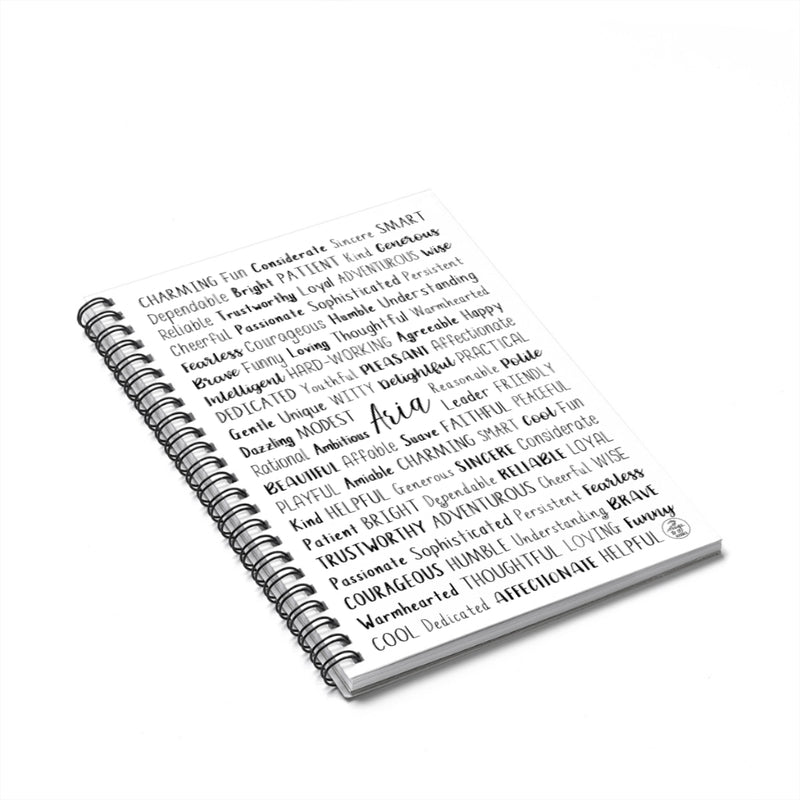 CHARMING Fun Considerate Sincere SMART
Dependable Bright PATIENT Kind Generous
Reliable Trustworthy Loyal ADVENTUROUS Wise
Cheerful Passionate Sophisticated Persistent
Fearless Courageous Humble Understanding
Brave Funny Loving Thoughtful Warmhearted
Intelligent HARD-WORKING Agreeable Happy
DEDICATED Youthful PLEASANT Affectionate
Gentle Unique WITTY Delightful PRACTICAL
Dazzling MODEST Aria Reasonable Polite
Rational Ambitious Leader FRIENDLY
BEAUTIFUL Affable Suave FAITHFUL PEACEFUL
PLAYFUL Amiable CHARMING SMART Cool Fun
Kind HELPFUL Generous SINCERE Considerate
Patient BRIGHT Dependable RELIABLE LOYAL
TRUSTWORTHY ADVENTUROUS Cheerful WISE
Passionate Sophisticated Persistent Fearless
COURAGEOUS HUMBLE Understanding BRAVE
Warmhearted THOUGHTFUL LOVING Funny
COOL Dedicated AFFECTIONATE HELPFUL